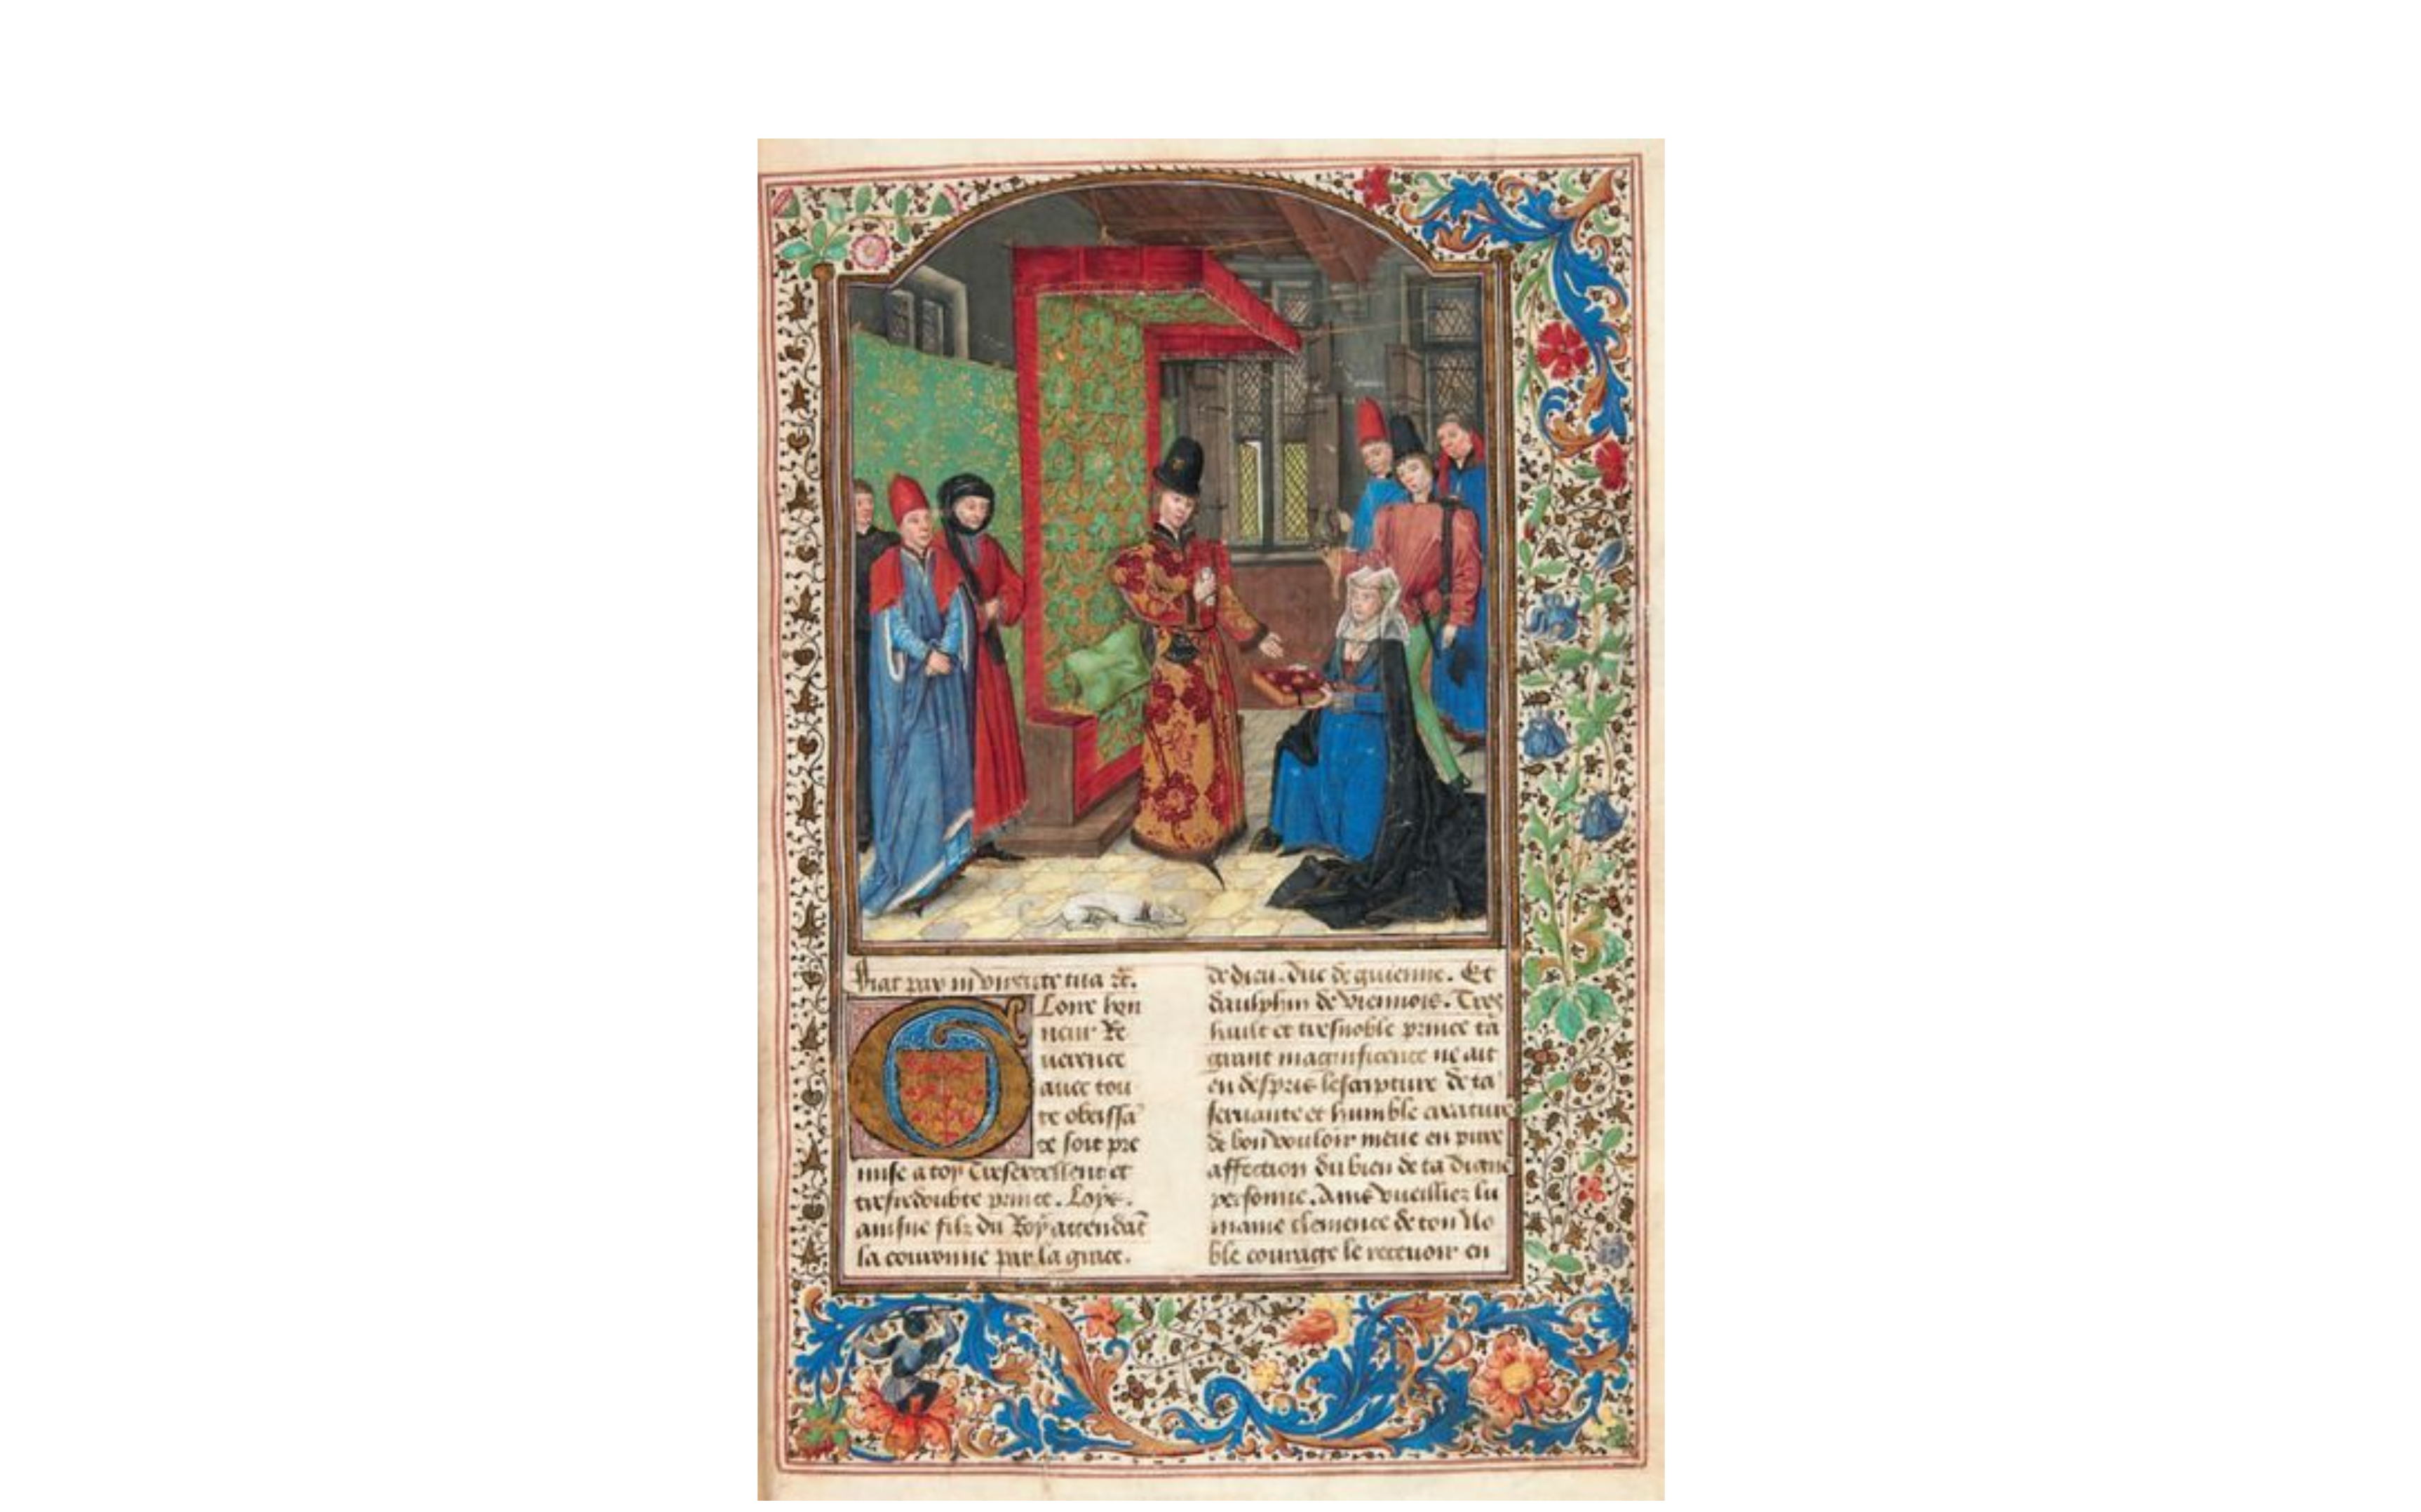 Fiat pax in virtute tua ⁊c̃.
Gloire hon
neur Re
uerence
auec tou
te obeissā
ce soit pre
mise a toy Tresexcellent et
tresredoubte prince. Loys.
ainsne filz du Roy attendāt
la couronne par la grace.
de dieu. duc de guienne. Et
daulphin de viennois. Tres
hault et tresnoble prince ta
grant magnificence ne ait
en despris lescripture de ta
seruante et humble creature
de bon vouloir meue en pure
affection du bien de ta digne
personne. Ains vueillies lu
maine clemence de ton No
ble courage le receuoir en